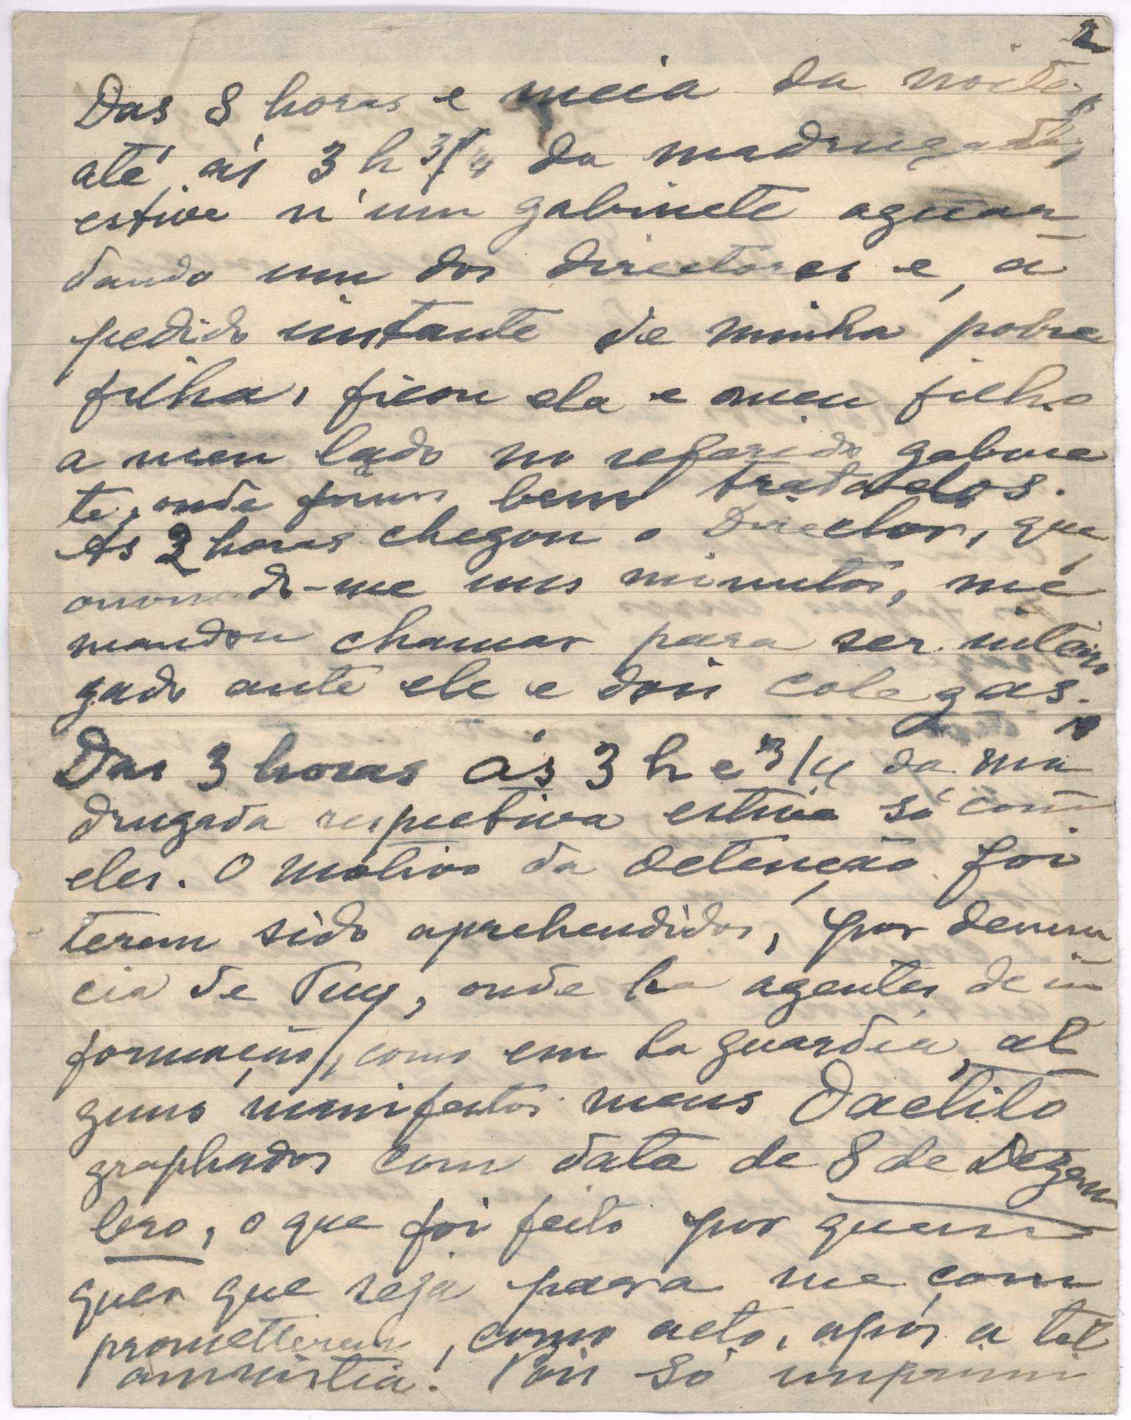 2
Das 8 horas e meia da noite,
até ás 3 h 3/4 da madrugada,
estive n'um gabinete aguar-
dando um dos directores e, a
pedido instante de minha pobre
filha, ficou ela e meu filho
a meu lado no referido gabine
te, onde fômos bem tratados.
As 2 horas chegou o Director, que,
ouvindo-me uns minutos, me
mandou chamar para ser interro
gado ante ele e dois colegas.
Das 3 horas ás 3 h e 3/4 da ma
drugada respectiva estive só com
eles. O motivo da detenção foi
terem sido aprehendidos, por denun
cia de Tuy, onde ha agentes de in
formação, como em La Guardia, al
guns manifestos meus Dactilo
graphados com data de 8 de Dezem
bro, o que foi feito por quem
quer que seja para me com
prometterem, como acto, após a tal
amnistia! Pois só imprimi